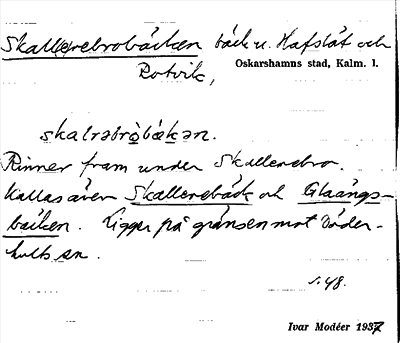 Skall(e)rebrobäcken bäck u. Hafslät och
Rotvik,
Oskarshamns stad, Kalm. l.
skalrəbrobäkən.
Rinner fram under Skallerebro.
Kallas även Skallerebäck och Glaängs-
bäcken. Ligger på gränsen mot Döder-
hults sn.
s. 48.
Ivar Modéer 1937